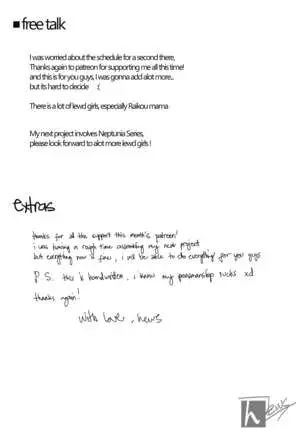 ■free talk
I was worried about the schedule for a second there,
Thanks again to patreon for supporting me all this time!
and this is for you guys, I was gonna add alot more..
but its hard to decide :(
There is a lot of lewd girls, especially Raikou mama
My next project involves Neptunia Series,
please look forward to alot more lewd girls !
extras
thanks for all the support this month's patreon!
i was having a rough time assembling my next project
but everything now is fine, i will be able to do everything for you guys
P.S. this is handwritten, i know my penmanship sucks xd
thanks again!
with love, hews
h